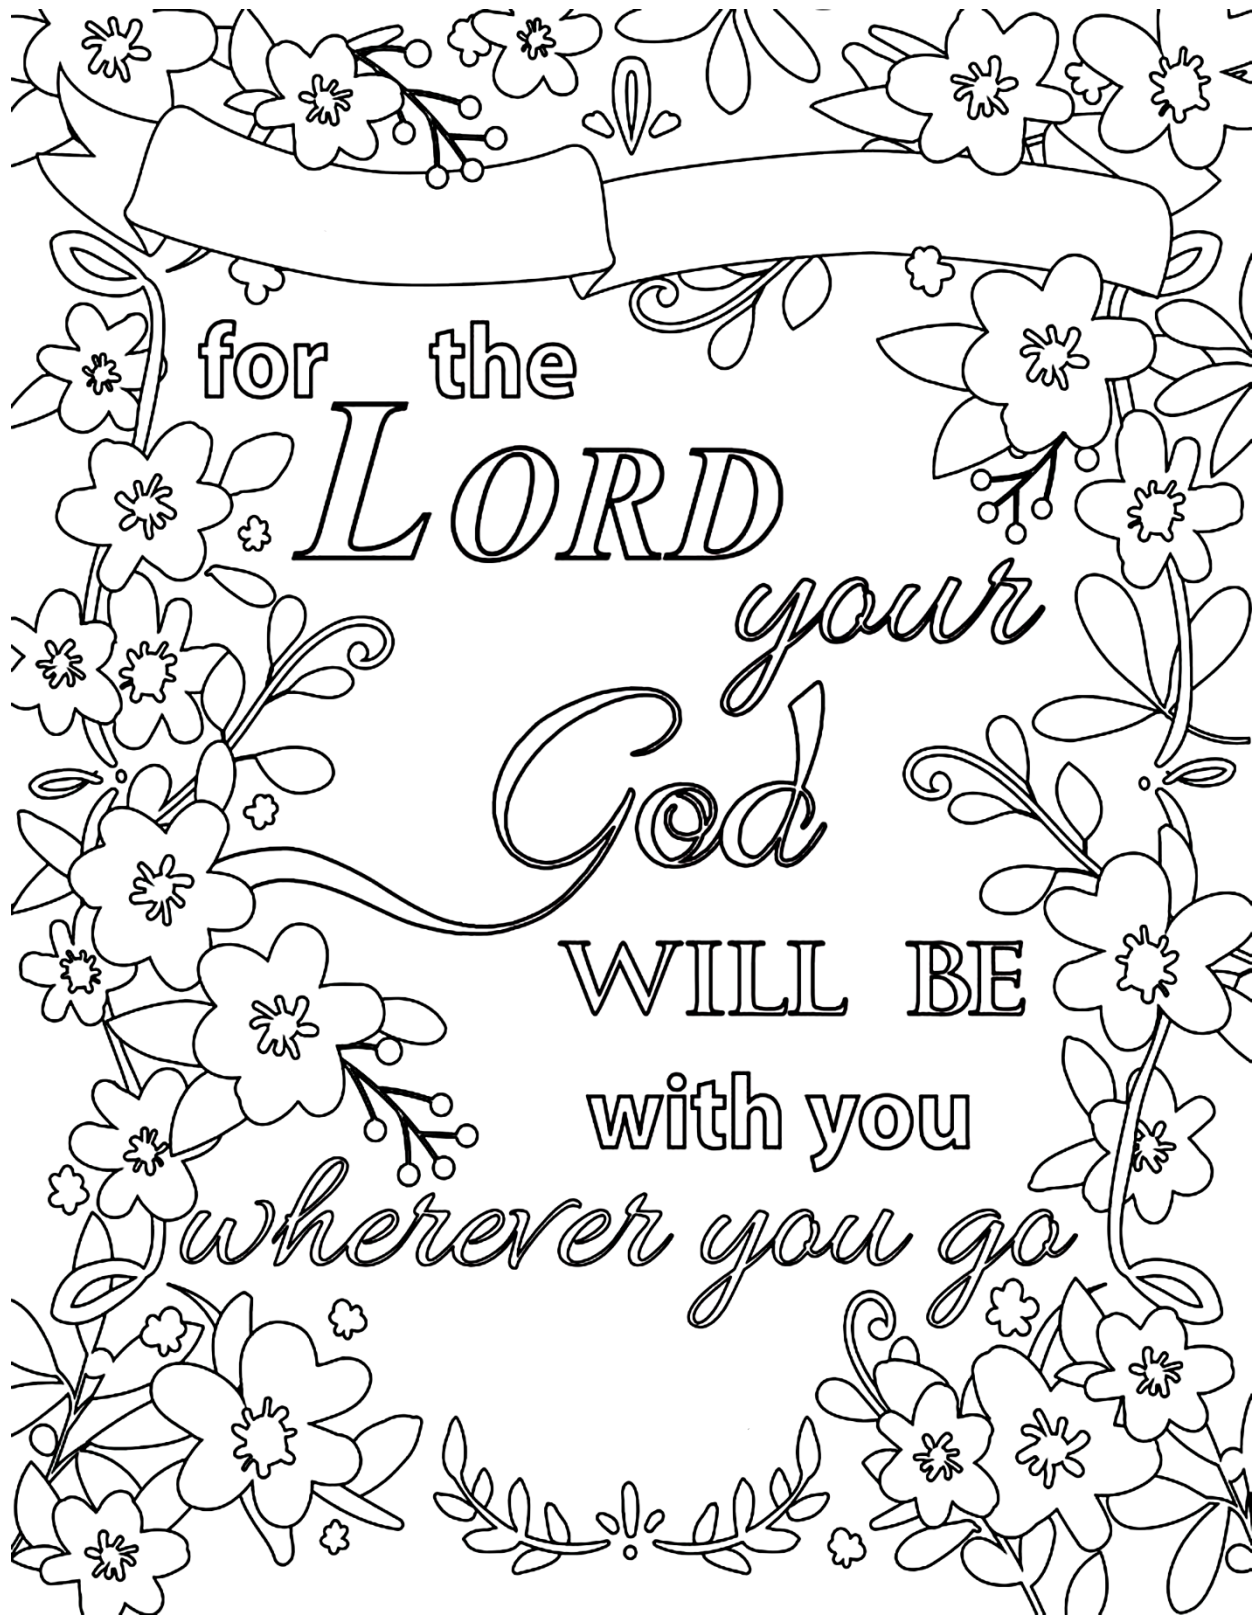 for the
LORD
your
God
WILL BE
with you
wherever you go